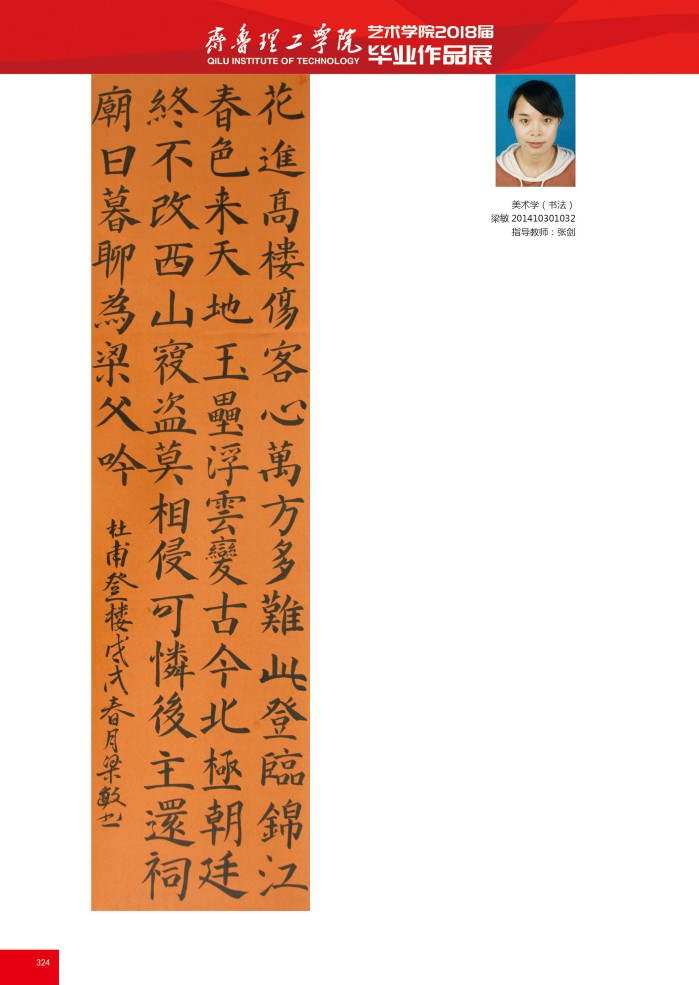 齊魯理工學院
QILU INSTITUTE OF TECHNOLOGY
艺术学院2018届
毕业作品展
花進髙樓傷客心萬方多難此登臨錦江
春色来天地玉壘浮雲變古今北極朝廷
終不改西山寇盜莫相侵可憐後主還祠
廟日暮聊為梁父吟
杜甫登楼戊戌春月梁敏书
美术学（书法）
梁敏 201410301032
指导教师：张剑
324